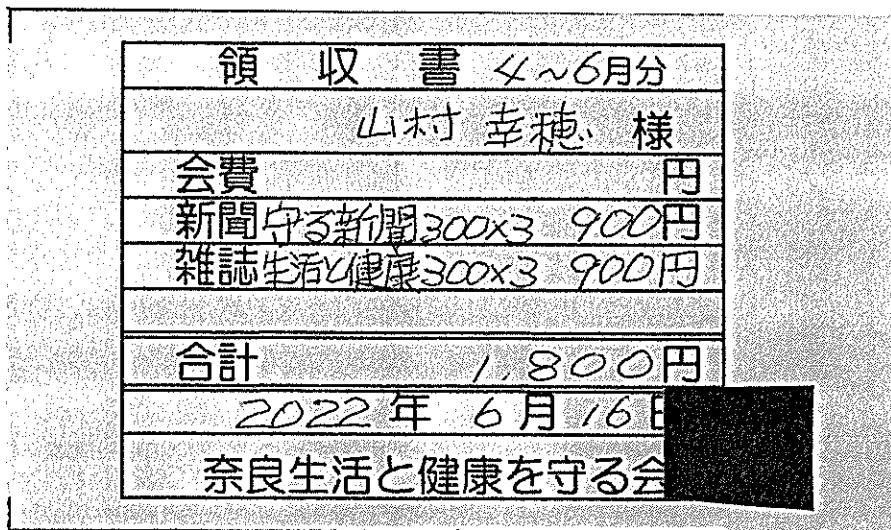 領収書 4~6月分
山村 幸穂 様
会費 円
新聞 守る新聞300×3 900円
雑誌 生活と健康300×3 900円
合計 1,800円
2022年 6月 16日
奈良生活と健康を守る会